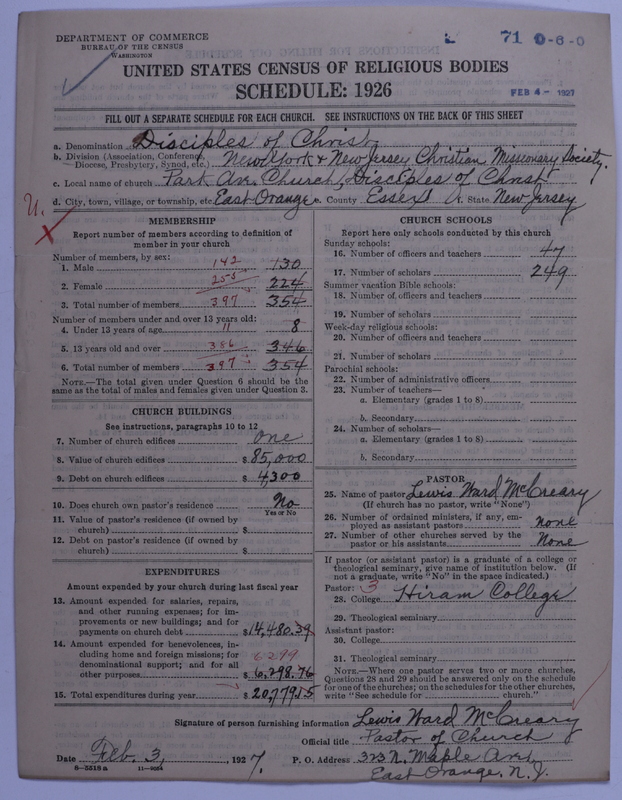 DEPARTMENT OF COMMERCE
BUREAU OF THE CENSUS
WASHINGTON
71 0-6-0
UNITED STATES CENSUS OF RELIGIOUS BODIES
SCHEDULE: 1926
FEB 4 - 1927
FILL OUT A SEPARATE SCHEDULE FOR EACH CHURCH. SEE INSTRUCTIONS ON THE BACK OF THIS SHEET
a. Denomination Disciples of Christ
b. Division (Association, Conference, Diocese, Presbytery, Synod, etc.) New York & New Jersey Christian Missionary Society.
c. Local name of church Park Av. Church, Disciples of Christ
d. City, town, village, or township, etc. East Orange e. County Essex f. State New Jersey
U.
MEMBERSHIP
Report number of members according to definition of
member in your church
Number of members, by sex:
1. Male 142 130
2. Female 255 224
3. Total number of members 397 354
Number of members under and over 13 years old:
4. Under 13 years of age 11 8
5. 13 years old and over 386 346
6. Total number of members 397 354
NOTE.—The total given under Question 6 should be the
same as the total of males and females given under Question 3.
CHURCH BUILDINGS
See instructions, paragraphs 10 to 12
7. Number of church edifices One
8. Value of church edifices $ 85,000
9. Debt on church edifices $ 4,300
10. Does church own pastor's residence No
Yes or No
11. Value of pastor's residence (if owned by
church) $
12. Debt on pastor's residence (if owned by
church) $
EXPENDITURES
Amount expended by your church during last fiscal year
13. Amount expended for salaries, repairs,
and other running expenses; for im-
provements or new buildings; and for
payments on church debt $ 14,480.39
14. Amount expended for benevolences, in-
cluding home and foreign missions; for
denominational support; and for all
other purposes 6299 $ 6,298.76
15. Total expenditures during year $ 20,779.15
CHURCH SCHOOLS
Report here only schools conducted by this church
Sunday schools:
16. Number of officers and teachers 47
17. Number of scholars 249
Summer vacation Bible schools:
18. Number of officers and teachers
19. Number of scholars
Week-day religious schools:
20. Number of officers and teachers
21. Number of scholars
Parochial schools:
22. Number of administrative officers
23. Number of teachers—
a. Elementary (grades 1 to 8)
b. Secondary
24. Number of scholars—
a. Elementary (grades 1 to 8)
b. Secondary
PASTOR
25. Name of pastor Lewis Ward McCreary
(If church has no pastor, write "None")
26. Number of ordained ministers, if any, em-
ployed as assistant pastors none
27. Number of other churches served by the
pastor or his assistants None
If pastor (or assistant pastor) is a graduate of a college or
theological seminary, give name of institution below. (If
not a graduate, write "No" in the space indicated.)
Pastor: 3
28. College Hiram College
29. Theological seminary
Assistant pastor:
30. College
31. Theological seminary
NOTE.—Where one pastor serves two or more churches,
Questions 28 and 29 should be answered only on the schedule
for one of the churches; on the schedules for the other churches,
write "See schedule for church."
Signature of person furnishing information Lewis Ward McCreary
Official title Pastor of Church
Date Feb. 3, 1927. P. O. Address 323 N. Maple Ave,
8-5518a 11-9654 East Orange, N. J.